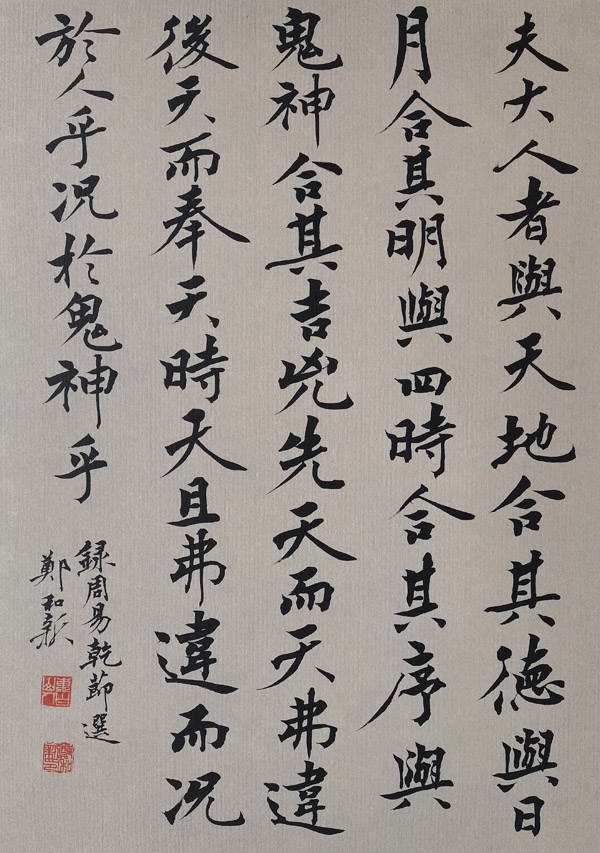 夫大人者與天地合其德與日
月合其明與四時合其序與
鬼神合其吉兇先天而天弗違
後天而奉天時天且弗違而況
於人乎況於鬼神乎
録周易乾節選
鄭和新